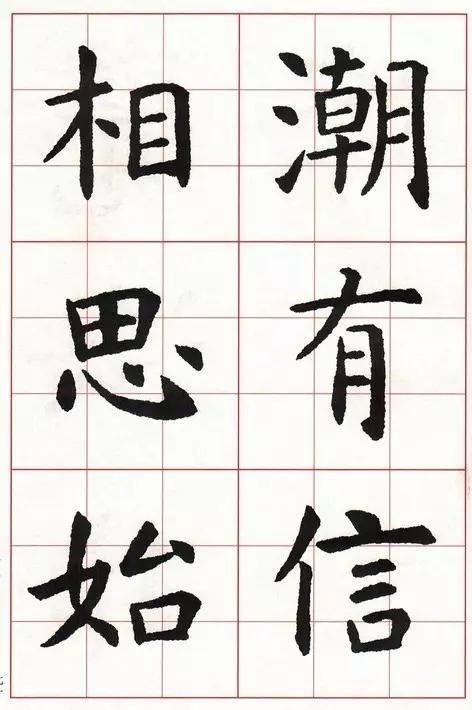 潮有信
相思始